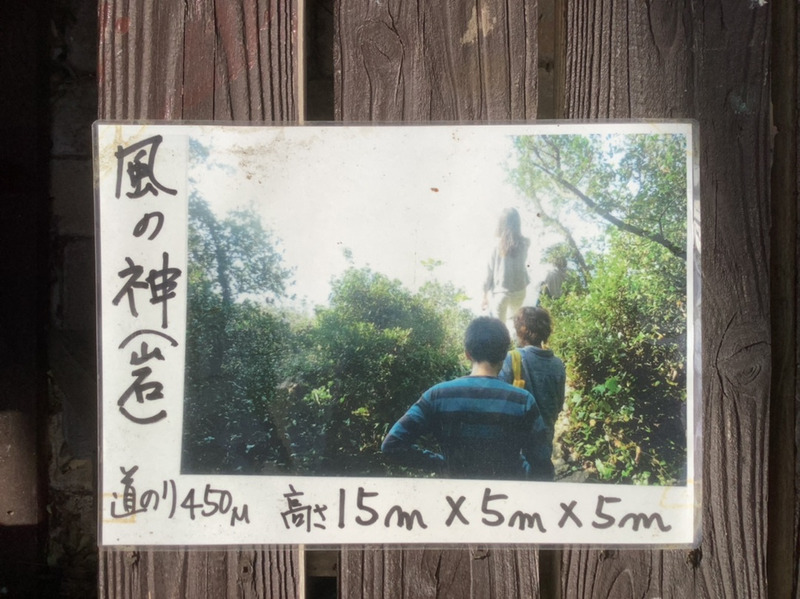 風の神(岩)
道のり450M 高さ15m×5m×5m